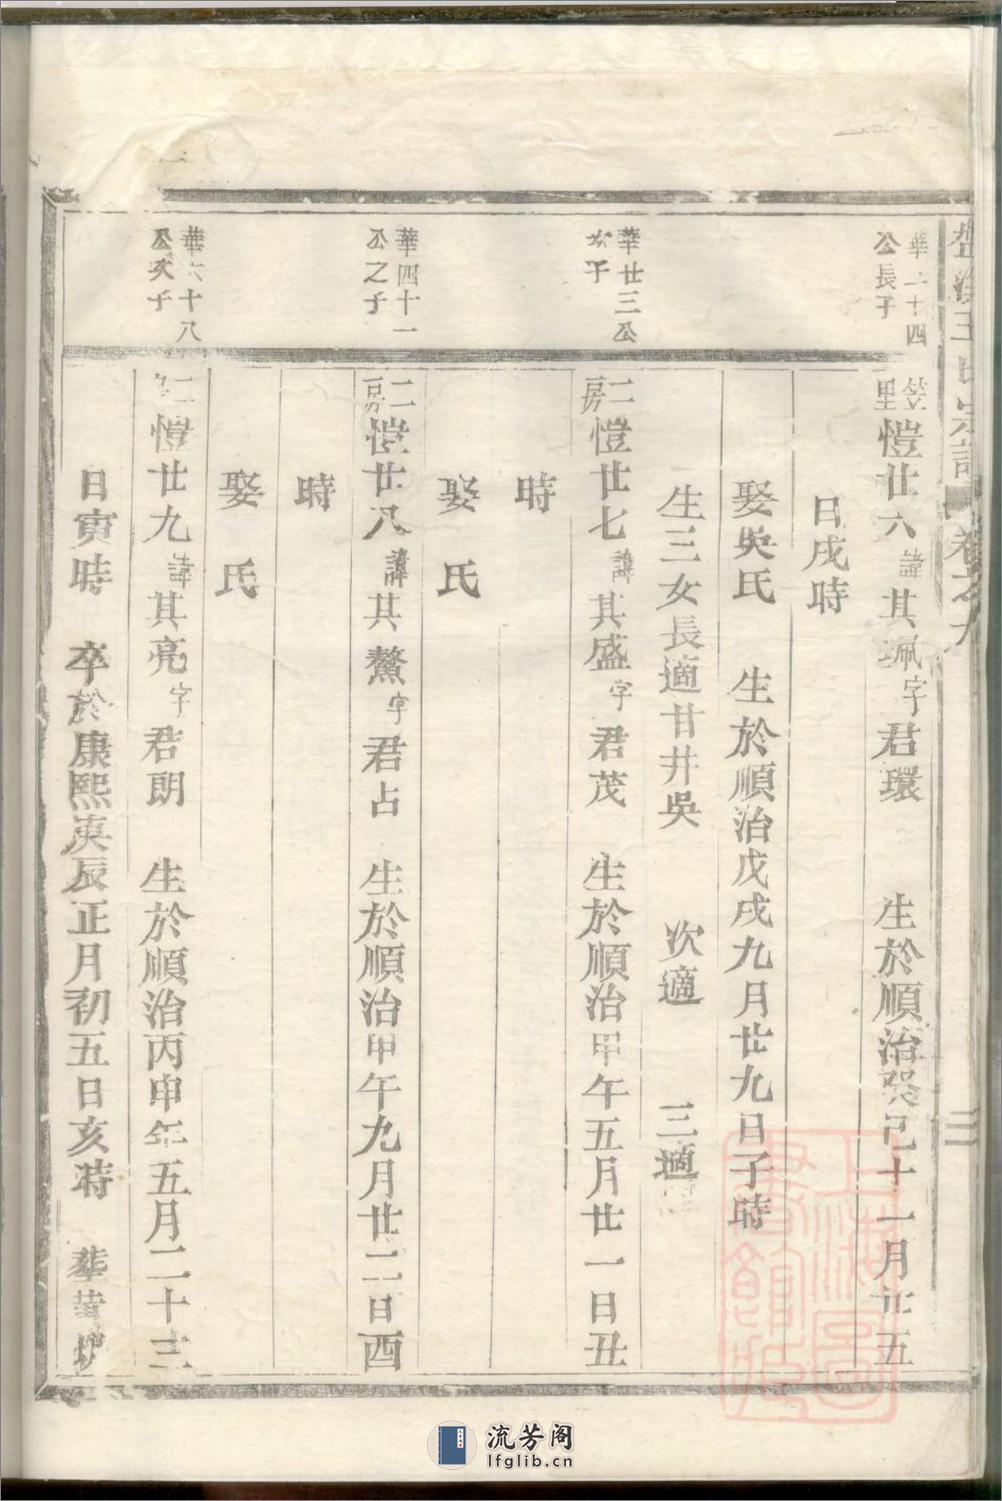 盤溪王氏宗譜 卷之九
三
華二十四
公長子
笠里愷廿六諱其珮字君環 生於順治癸巳十一月廿五
日戌時
娶吳氏 生於順治戊戌九月廿九日子時
生三女長適甘井吳 次適 三適
華廿三公
次子
二房愷廿七諱其盛字君茂 生於順治甲午五月廿一日丑
時
娶氏
華四十一
公之子
二房愷廿八諱其鰲字君占 生於順治甲午九月廿二日酉
時
娶氏
華六十八
公次子
二愷廿九諱其亮字君朗 生於順治丙申年五月二十三
日寅時 卒於康熙庚辰正月初五日亥時 葬黃
上海圖書館藏
流芳阁
lfglib.cn